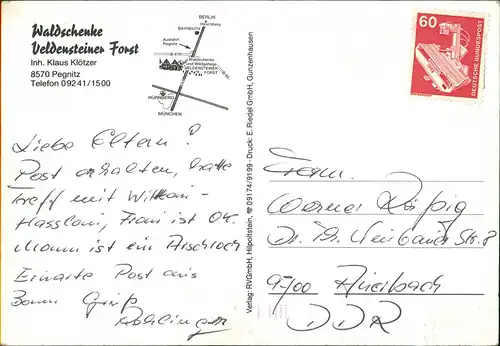 Waldschenke
Veldensteiner Forst
Inh. Klaus Klötzer
8570 Pegnitz
Telefon 0 92 41 / 15 00
BERLIN
Hirschberg
BAYREUTH
Ausfahrt
Pegnitz
Waldschenke
und Wildgehege
VELDENSTEINER
FORST
NÜRNBERG
MÜNCHEN
60
DEUTSCHE BUNDESPOST
Liebe Eltern!
Post erhalten, hatte
treff mit
ist OK.
Mann ist ein Arschloch
Erwarte Post aus
Bonn Gruß
Verlag: RVGmbH, Hilpoltstein, ☎ 09174/9199 · Druck: E. Riedel GmbH, Gunzenhausen
Werner
Dr. Str. 8
9700 Auerbach
DDR